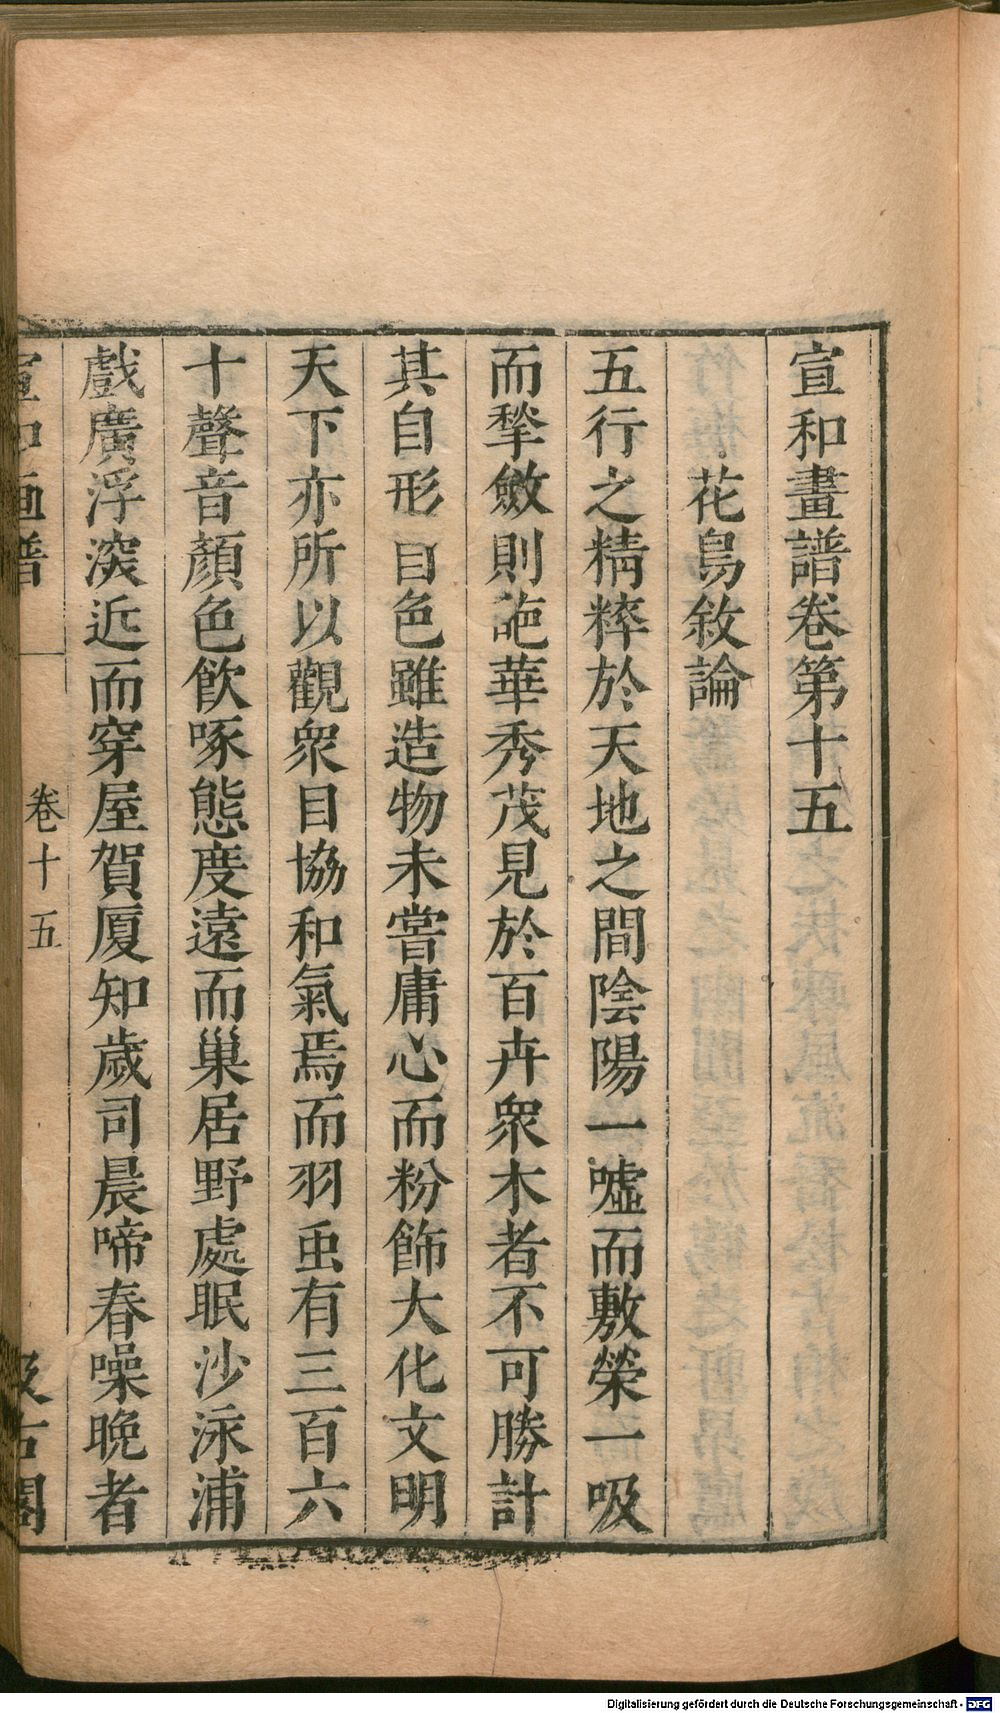 宣和畫譜卷第十五
花鳥敘論
五行之精粹於天地之間陰陽一噓而敷榮一吸
而揫斂則葩華秀茂見於百卉衆木者不可勝計
其自形自色雖造物未嘗庸心而粉飾大化文明
天下亦所以觀衆目協和氣焉而羽虫有三百六
十聲音顏色飮啄態度遠而巢居野處眠沙泳浦
戲廣浮深近而穿屋賀厦知歲司晨啼春噪晚者
宣和画譜
卷十五
汲古閣
Digitalisierung gefördert durch die Deutsche Forschungsgemeinschaft - DFG